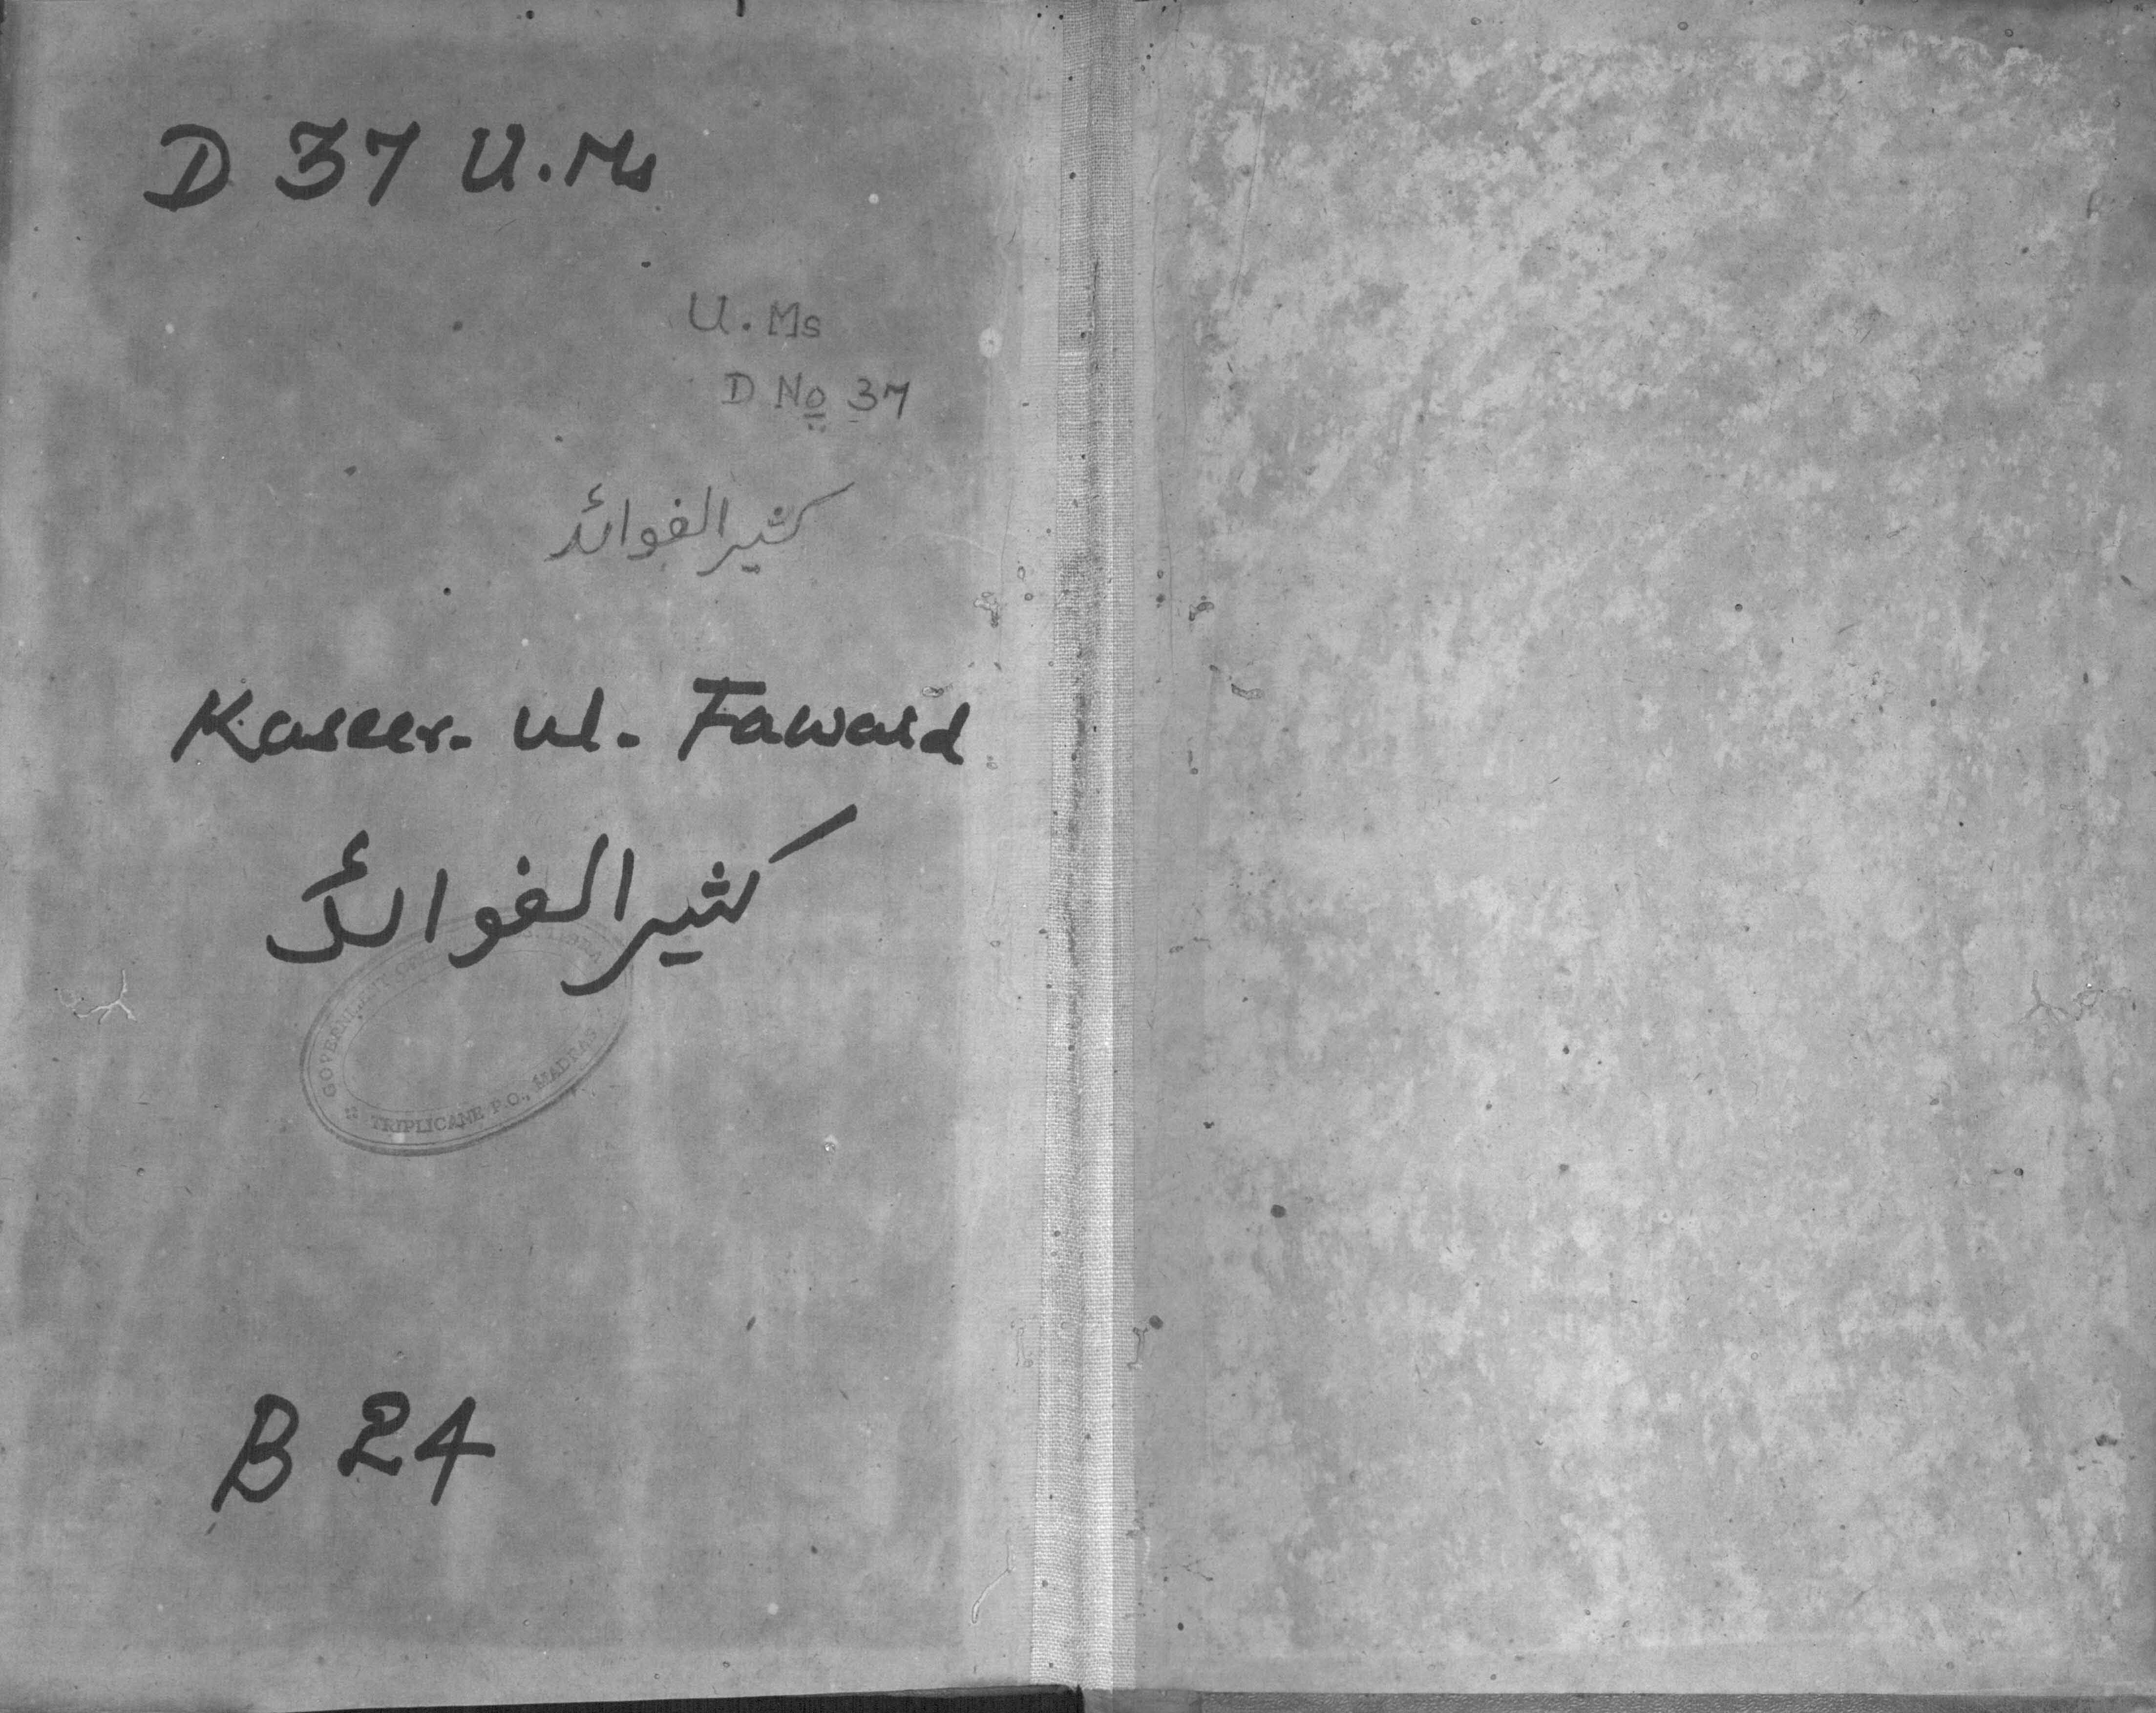 D 37 U.Ms
U. Ms
D No 37
كثير الفوائد
Kaseer. ul. Fawaid
كثير الفوائد
GOVERNMENT
TRIPLICANE P.O., MADRAS
B 24